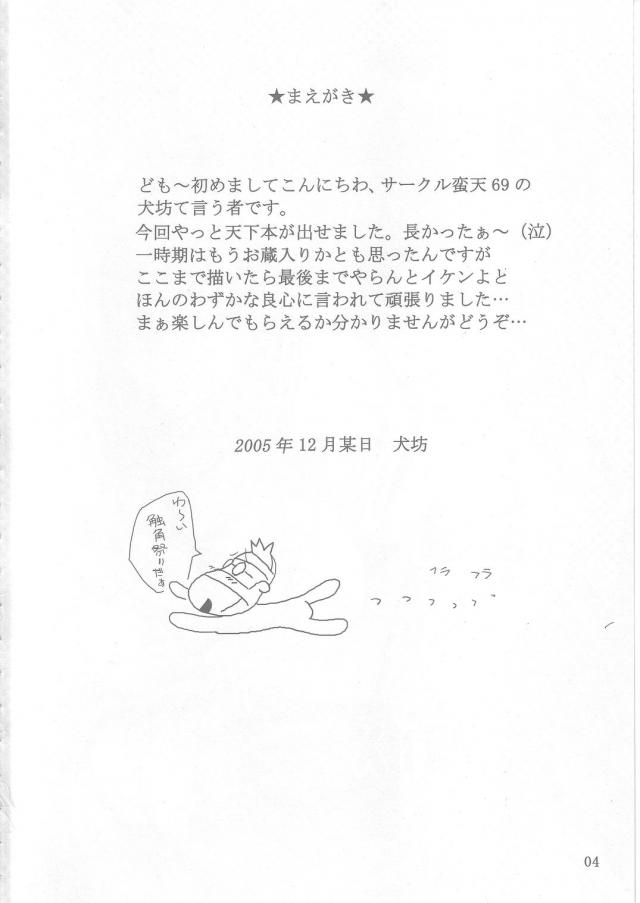 ★まえがき★
ども～初めましてこんにちわ、サークル蛮天69の
犬坊て言う者です。
今回やっと天下本が出せました。長かったぁ～（泣）
一時期はもうお蔵入りかとも思ったんですが
ここまで描いたら最後までやらんとイケンよと
ほんのわずかな良心に言われて頑張りました…
まぁ楽しんでもらえるか分かりませんがどうぞ…
2005年12月某日　犬坊
わ〜い
触角祭りだぁ
フラ　フラ
04